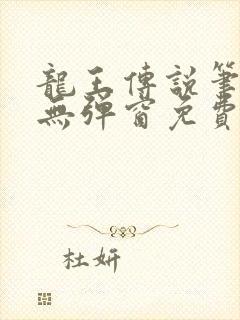 龍王傳說筆
無彈窗免費
杜妍